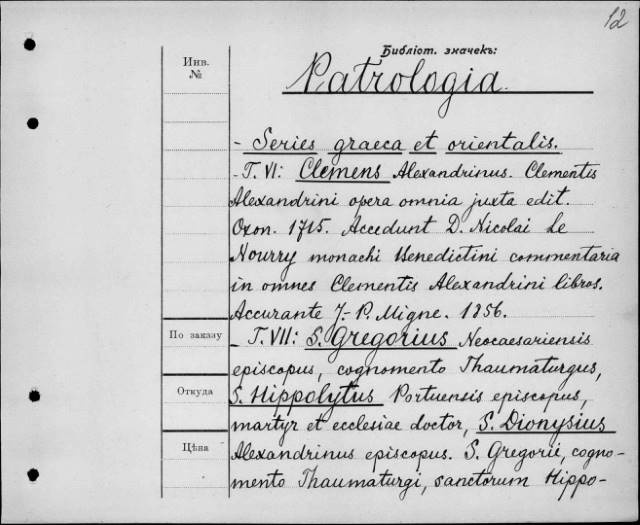 12
Библіот. значекъ:
Инв.
№
Patrologia.
- Series graeca et orientalis.
- T. VI: Clemens Alexandrinus. Clementis
Alexandrini opera omnia juxta edit.
Oxon. 1715. Accedunt D. Nicolai le
Nourry monachi Benedictini commentaria
in omnes Clementis Alexandrini libros.
Accurante J.-P. Migne. 1856.
По заказу
- T. VII: S. Gregorius Neocaesariensis
episcopus, cognomento Thaumaturgus,
Откуда
S. Hippolytus Portuensis episcopus,
martyr et ecclesiae doctor, S. Dionysius
Цѣна
Alexandrinus episcopus. S. Gregorii, cogno-
mento Thaumaturgi, sanctorum Hippo-